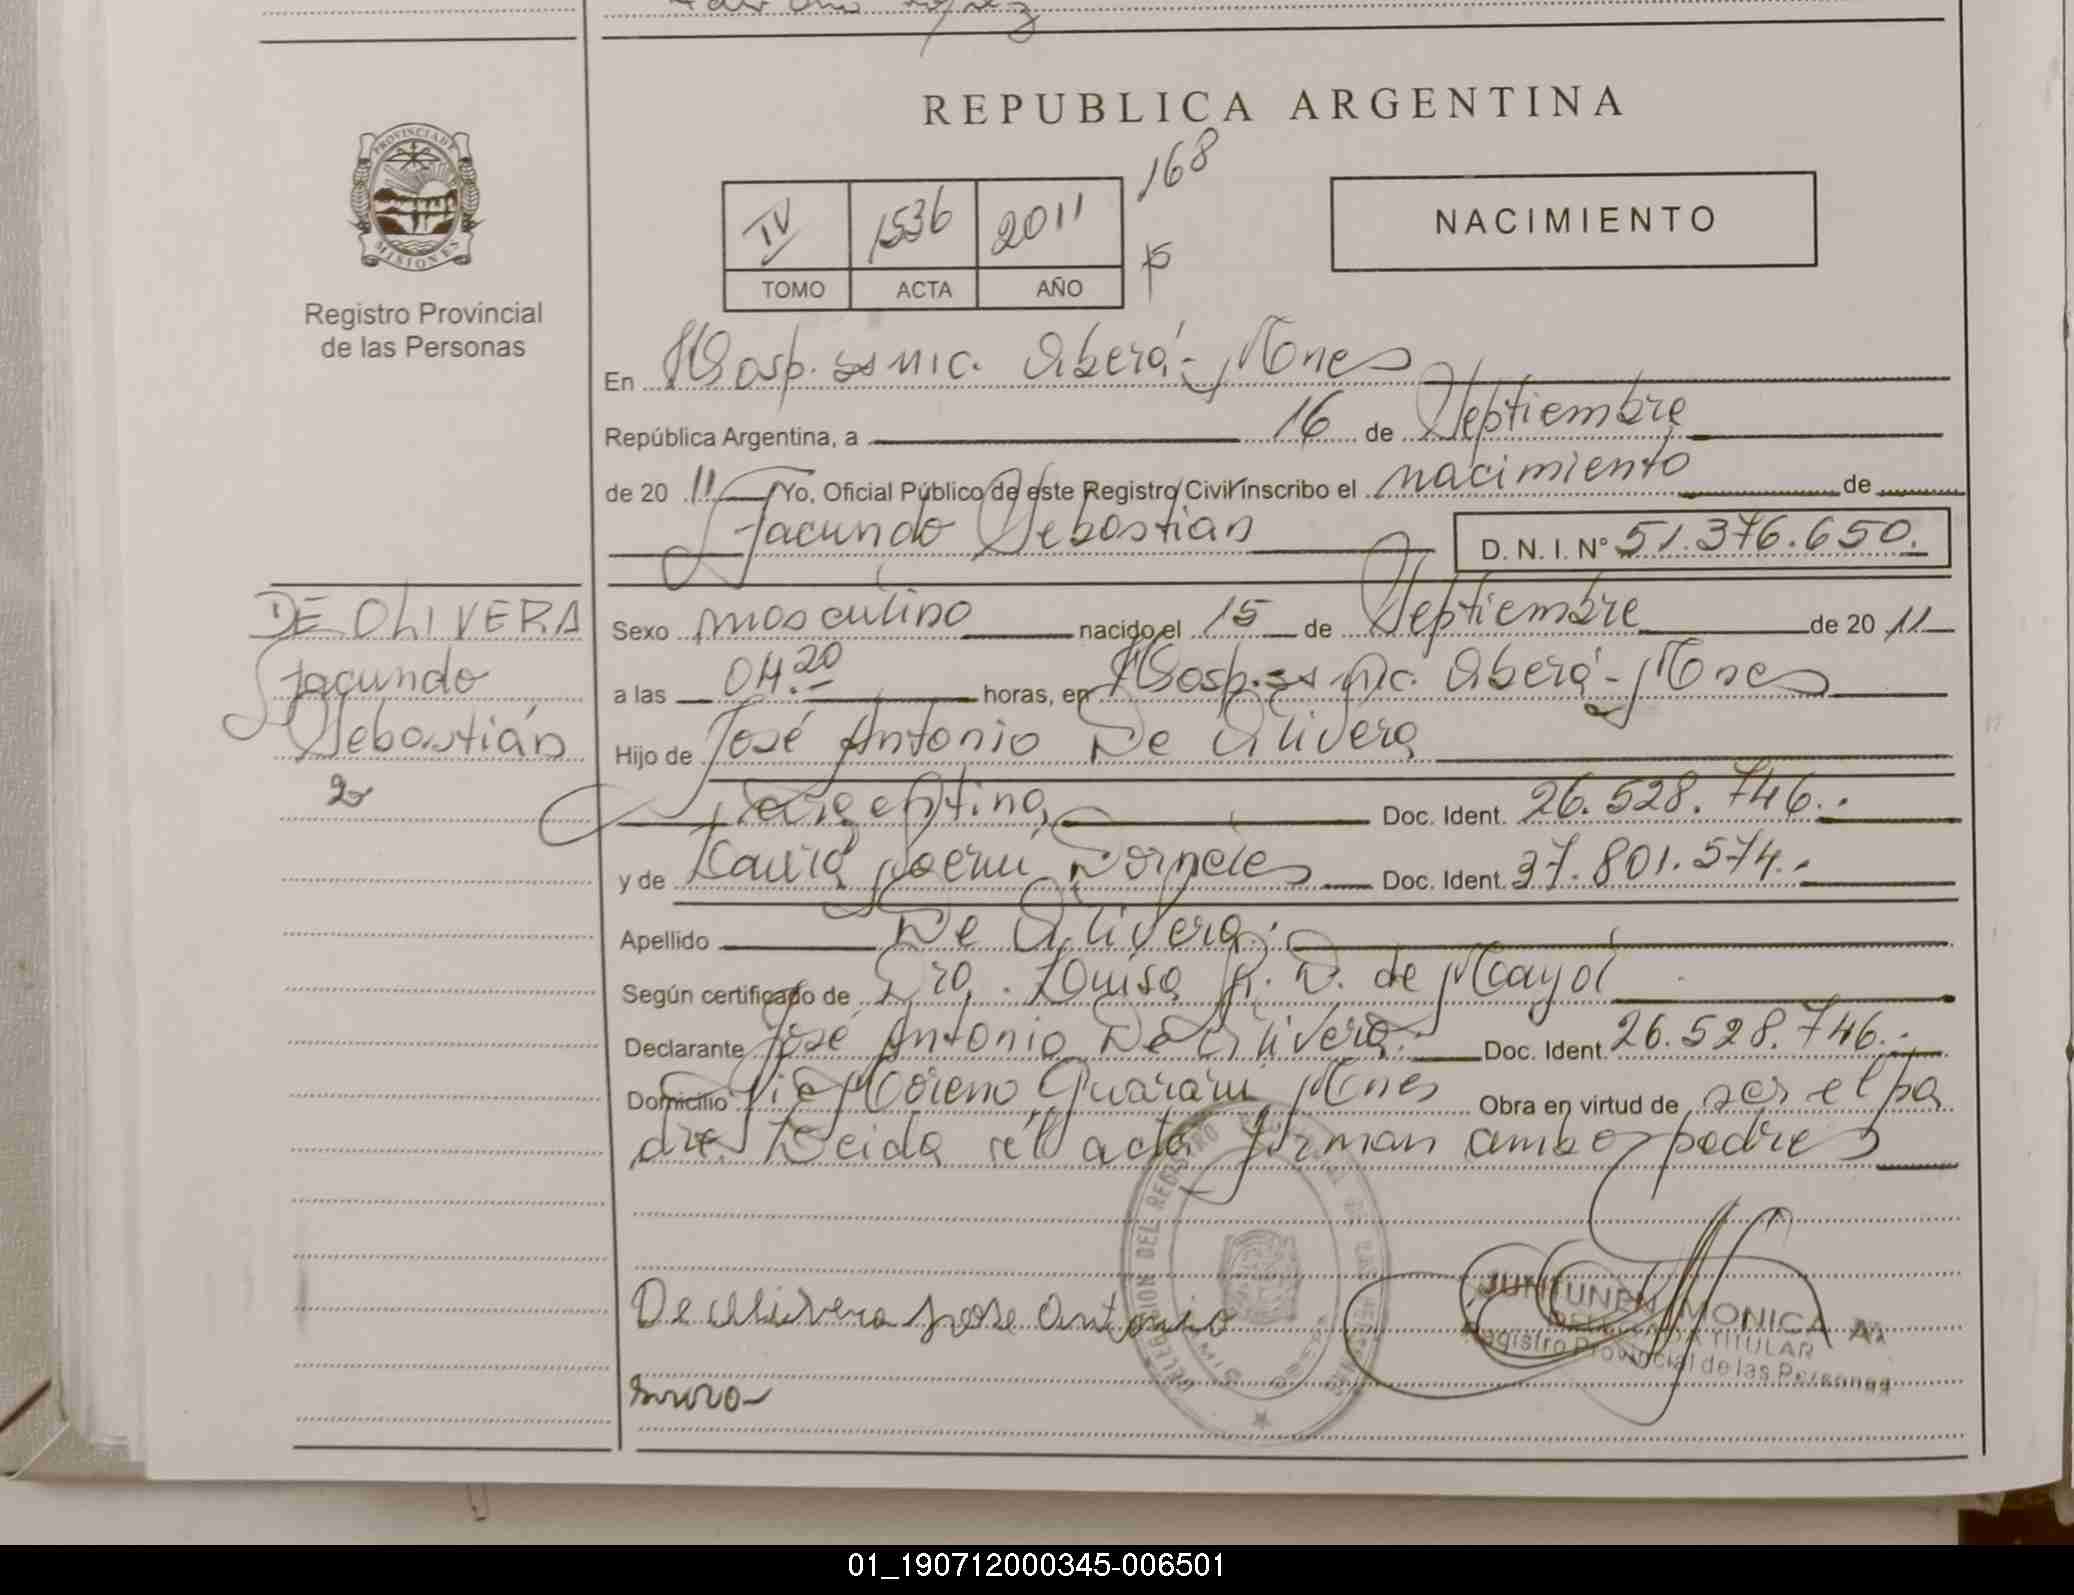 REPUBLICA ARGENTINA
168
PROVINCIA DE
MISIONES
Registro Provincial
de las Personas
IV 1536 2011
TOMO ACTA AÑO
NACIMIENTO
En Hosp. ss mic. Oberá - Mnes
República Argentina, a 16 de Septiembre
de 20 11 Yo, Oficial Público de este Registro Civil inscribo el nacimiento de
Facundo Sebastián D. N. I. N° 51.376.650.
DE OLIVERA
Facundo
Sebastián
Sexo masculino nacido el 15 de Septiembre de 20 11
a las 04.20 horas, en Hosp. ss mic. Oberá - Mnes
Hijo de José Antonio De Olivera
Argentina Doc. Ident. 26.528.746.
y de Laura Noemi Dorneles Doc. Ident. 37.801.574.
Apellido De Olivera.
Según certificado de Dra. Luisa R. D. de Mayol
Declarante José Antonio De Olivera. Doc. Ident. 26.528.746.
Domicilio Moreno Guaraní Mnes Obra en virtud de ser el pa
dre. Leida el acta firman ambos padres
De Olivera Jose Antonio
DELEGACION DEL REGISTRO PROVINCIAL DE LAS PERSONAS
JUNTUNEN MONICA A.
DELEGADA TITULAR
Registro Provincial de las Personas
01_190712000345-006501